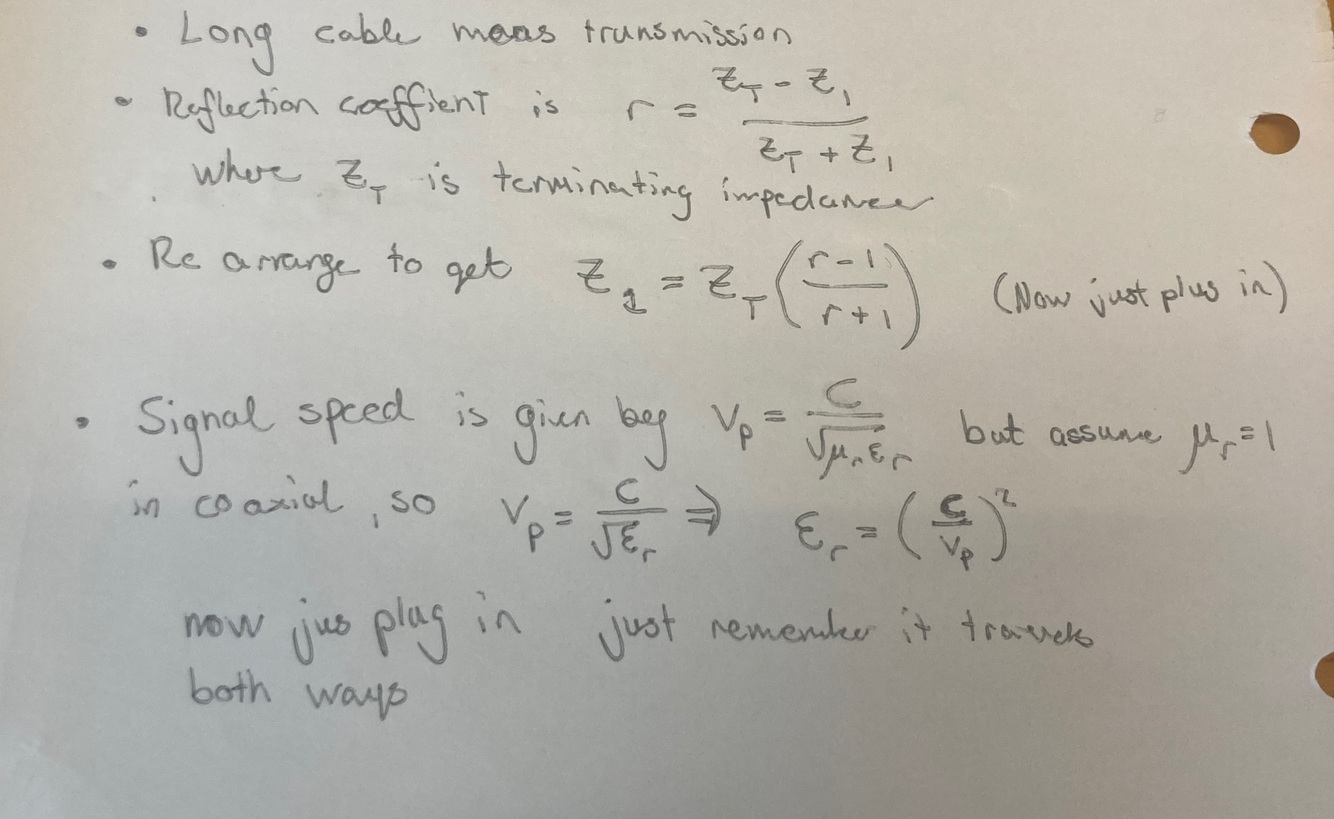 • Long cable meas transmission
• Reflection coeffient is r = (Z_T - Z_1)/(Z_T + Z_1)
where Z_T is terminating impedance
• Re arrange to get Z_1 = Z_T ((r-1)/(r+1)) (Now just plus in)
• Signal speed is given by V_p = C/√(μ_r ε_r) but assume μ_r = 1
in coaxial, so V_p = C/√ε_r ⇒ ε_r = (C/V_p)^2
now jus plug in just remember it travels
both ways